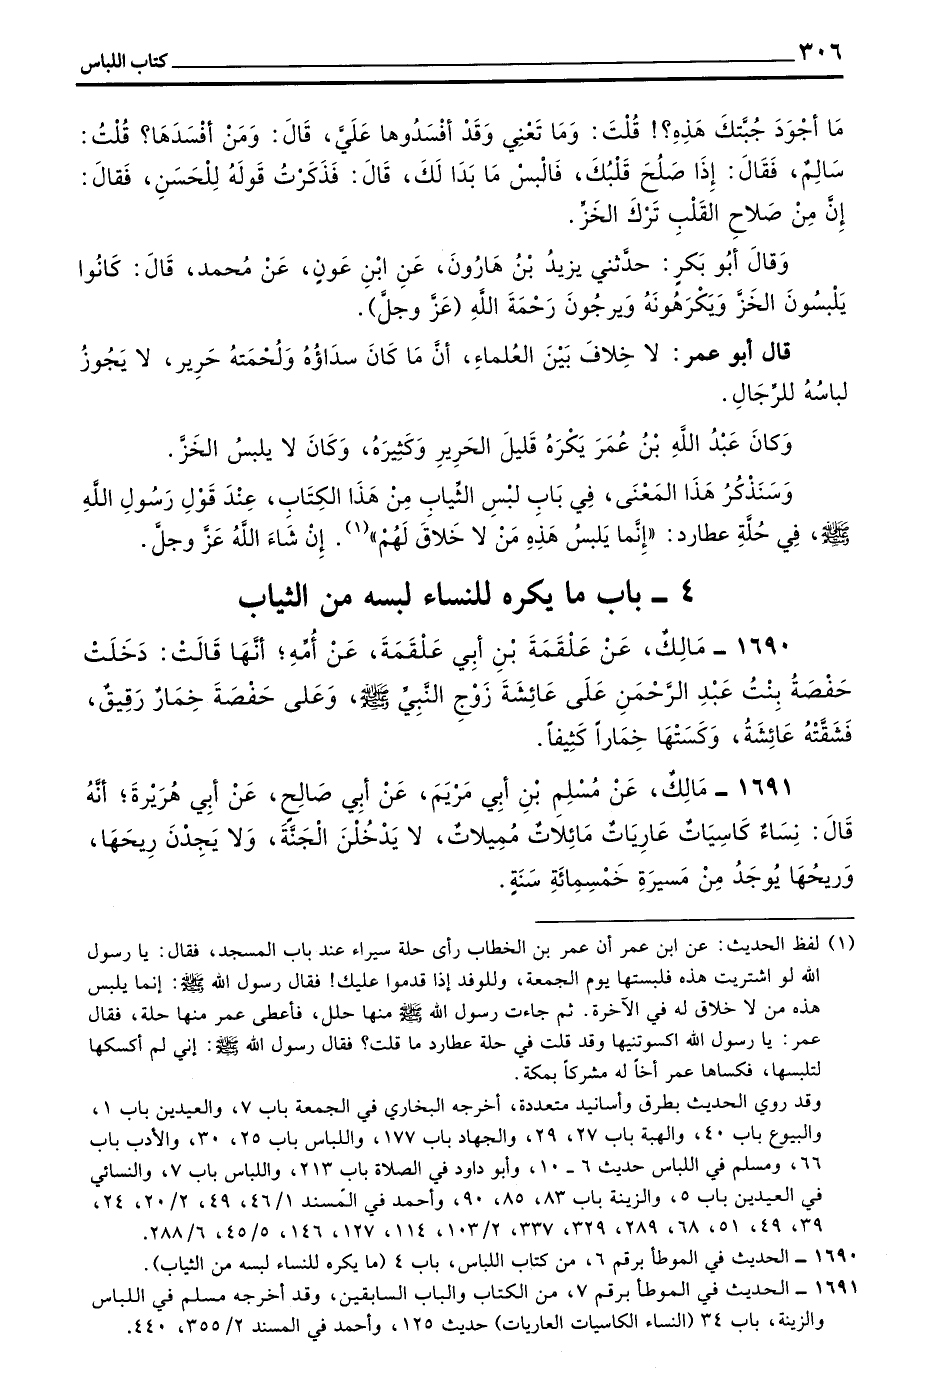 ٣٠٦ كتاب اللباس
مَا أجْوَدَ جُبَّتكَ هَذِهِ؟! قُلْتَ: وَمَا تَعْنِي وَقَدْ أفْسَدُوها عَلَيَّ، قَالَ: وَمَنْ أفْسَدَهَا؟ قُلْتُ:
سَالِمٌ، فَقَالَ: إذَا صَلُحَ قَلْبُكَ، فَالْبسْ مَا بَدَا لَكَ، قَالَ: فَذَكَرْتُ قَولَهُ لِلْحَسَنِ، فَقالَ:
إنَّ مِنْ صَلاحِ القَلْبِ تَرْكَ الخَزِّ.
وَقالَ أبُو بَكرٍ: حدَّثني يزِيدُ بْنُ هَارُونَ، عَنِ ابْنِ عَونٍ، عَنْ مُحمد، قَالَ: كَانُوا
يَلْبسُونَ الخَزَّ وَيَكْرَهُونَهُ وَيرجُونَ رَحْمَةَ اللَّهِ (عَزَّ وجلَّ).
قال أبو عمر: لا خِلافَ بَيْنَ العُلماءِ، أنَّ مَا كَانَ سدَاؤُهُ وَلُحْمَتهُ حَرِير، لا يَجُوزُ
لباسُهُ للرِّجَالِ.
وَكانَ عَبْدُ اللَّهِ بْنُ عُمَرَ يَكْرَهُ قَلِيلَ الحَرِيرِ وَكَثِيرَهُ، وَكَانَ لا يلبسُ الخَزَّ.
وَسَنَذْكُرُ هَذَا المَعْنَى، فِي بَابِ لبْسِ الثِّيابِ مِنْ هَذَا الكِتَابِ، عِنْدَ قَوْلِ رَسُولِ اللَّهِ
ﷺ، فِي حُلَّةِ عطارد: «إنَّما يَلبسُ هَذِهِ مَنْ لا خَلاقَ لَهُمْ»(١). إنْ شَاءَ اللَّهُ عَزَّ وجلَّ.
٤ ـ باب ما يكره للنساء لبسه من الثياب
١٦٩٠ ـ مَالِكٌ، عَنْ عَلْقَمَةَ بْنِ أبي عَلْقَمَةَ، عَنْ أُمِّهِ؛ أنَّهَا قَالَتْ: دَخَلَتْ
حَفْصَةُ بِنْتُ عَبْدِ الرَّحْمَنِ عَلَى عَائِشَةَ زَوْجِ النَّبِيِّ ﷺ، وَعَلى حَفْصَةَ خِمَارٌ رَقِيقٌ،
فَشَقَّتْهُ عَائِشَةُ، وَكَسَتْهَا خِمَاراً كَثِيفاً.
١٦٩١ ـ مَالِكٌ، عَنْ مُسْلِمِ بْنِ أبي مَرْيَمَ، عَنْ أبي صَالِحٍ، عَنْ أبي هُرَيْرةَ؛ أنَّهُ
قَالَ: نِسَاءٌ كَاسِيَاتٌ عَارِيَاتٌ مَائِلاتٌ مُمِيلاتٌ، لا يَدْخُلْنَ الْجَنَّةَ، وَلا يَجِدْنَ رِيحَهَا،
وَرِيحُهَا يُوجَدُ مِنْ مَسيرَةِ خَمْسِمائَةِ سَنَةٍ.
(١) لفظ الحديث: عن ابن عمر أن عمر بن الخطاب رأى حلة سيراء عند باب المسجد، فقال: يا رسول
الله لو اشتريت هذه فلبستها يوم الجمعة، وللوفد إذا قدموا عليك! فقال رسول الله ﷺ: إنما يلبس
هذه من لا خلاق له في الآخرة. ثم جاءت رسول الله ﷺ منها حلل، فأعطى عمر منها حلة، فقال
عمر: يا رسول الله اكسوتنيها وقد قلت في حلة عطارد ما قلت؟ فقال رسول الله ﷺ: إني لم أكسكها
لتلبسها، فكساها عمر أخاً له مشركاً بمكة.
وقد روي الحديث بطرق وأسانيد متعددة، أخرجه البخاري في الجمعة باب ٧، والعيدين باب ١،
والبيوع باب ٤٠، والهبة باب ٢٧، ٢٩، والجهاد باب ١٧٧، واللباس باب ٢٥، ٣٠، والأدب باب
٦٦، ومسلم في اللباس حديث ٦ ـ ١٠، وأبو داود في الصلاة باب ٢١٣، واللباس باب ٧، والنسائي
في العيدين باب ٥، والزينة باب ٨٣، ٨٥، ٩٠، وأحمد في المسند ٤٦/١، ٤٩، ٢٠/٢، ٢٤،
٣٩، ٤٩، ٥١، ٦٨، ٢٨٩، ٣٢٩، ٣٣٧، ١٠٣/٢، ١١٤، ١٢٧، ١٤٦، ٤٥/٥، ٢٨٨/٦.
١٦٩٠ ـ الحديث في الموطأ برقم ٦، من كتاب اللباس، باب ٤ (ما يكره للنساء لبسه من الثياب).
١٦٩١ ـ الحديث في الموطأ برقم ٧، من الكتاب والباب السابقين، وقد أخرجه مسلم في اللباس
والزينة، باب ٣٤ (النساء الكاسيات العاريات) حديث ١٢٥، وأحمد في المسند ٣٥٥/٢، ٤٤٠.